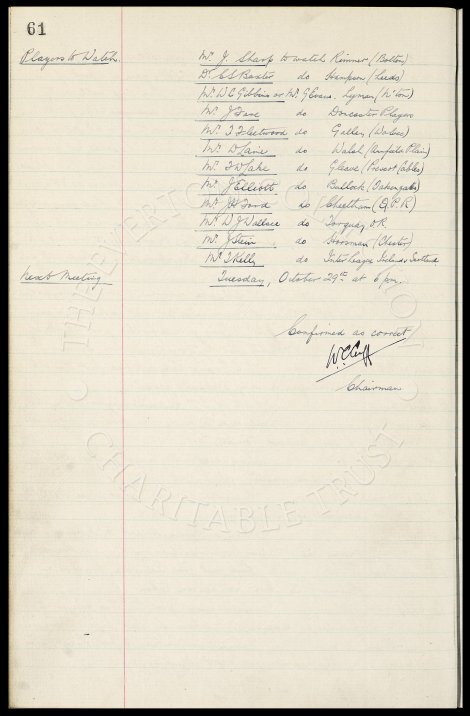 61
Players to Watch. Mr J. Sharp to watch Rimmer (Bolton)
Dr C S Baxter do Hampson (Leeds)
Mr W C Gibbins or Mr G Evans, Lyman (N'ton)
Mr J Fare do Doncaster Players
Mr T Fleetwood do (Wolves)
Mr D Lane do Walsh (Annfield Plain)
Mr F W Lake do Gleave (Prescot Cables)
Mr J Elliott. do Bullock (Oakengates)
Mr J H Ford do Cheetham (Q.P.R)
Mr W J Wallace do Torquay, O.R.
Mr J Stein do Horsman (Chester)
Mr T Kelly do Inter League Ireland Scotland
Next Meeting Tuesday, October 29th at 6 pm.
Confirmed as correct
W.C.Cuff
Chairman
THE EVERTON COLLECTION
CHARITABLE TRUST